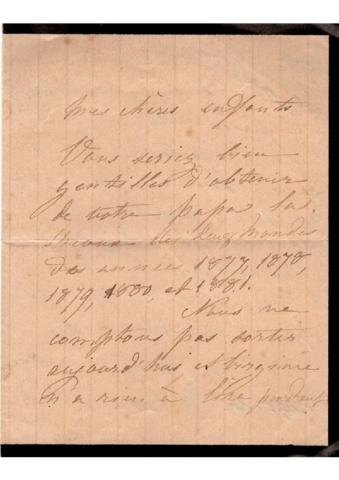 mes chères enfants
Vous seriez bien
gentilles d'obtenir
de votre papa la
Revue des deux mondes
des années 1877, 1878,
1879, 1880, et 1881.
Nous ne
comptons pas sortir
aujourd'hui et Virginie
n'a rien à lire pendant